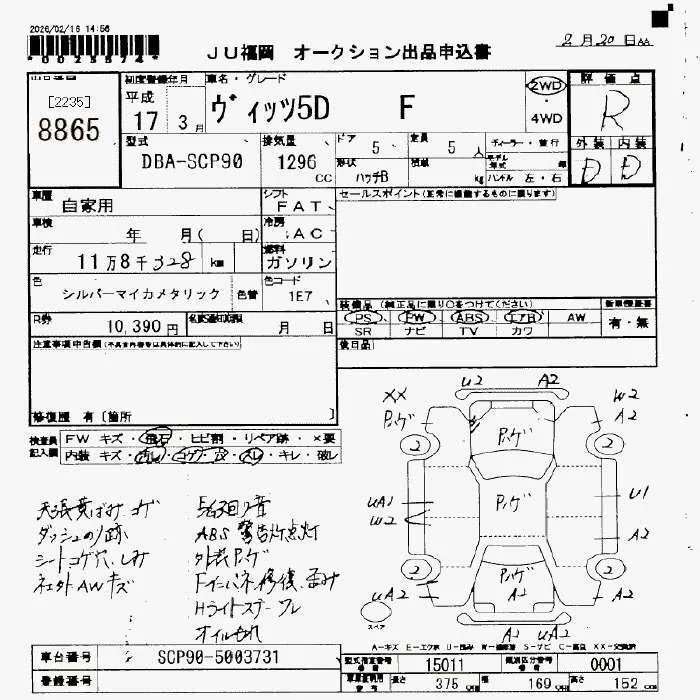 2026/02/16 14:56
*00255774*
JU福岡 オークション出品申込書
2月20日AA
出品番号
[2235]
8865
初度登録年月
平成
17 3月
車名・グレード
ヴィッツ5D F
2WD
・
4WD
評価点
R
外装 内装
D D
型式
DBA-SCP90
排気量
1296
cc
ドア
5
定員
5 人
形状
ハッチB
積載
kg
ディーラー・並行
モデル年式 年
ハンドル 左・右
車歴
自家用
シフト
FAT
セールスポイント(正常に機能するものに限ります)
車検
年 月( 日)
冷房
AC
走行
11万8千328 km
燃料
ガソリン
色
シルバーマイカメタリック
色替
色コード
1E7
R券
10,390円
月 日
装備品(純正品に限り○をつけてください)
PS PW ABS エアB AW
SR ナビ TV カワ
新車保証書
有・無
後日品
注意事項申告欄(不具合内容等は具体的に記入して下さい)
修復歴 有[箇所 ]
検査員
記入欄
FW キズ・飛石・ヒビ割・リペア跡・×要
内装 キズ・汚れ・コゲ・穴・スレ・キレ・破レ
天張黄ばみ コゲ
ダッシュのり跡
シートコゲ穴、しみ
社外AWキズ
足廻り音
ABS警告灯点灯
外装Pハゲ
Fインパネ修復、歪み
Hライトステー ズレ
オイルもれ
U2 A2
XX
Pハゲ
W2
A2
2 2
Pハゲ
Pハゲ
UA1
W2
U1
A2
2 2
Pハゲ
A2
UA2
A2
A2 UA2
スペア
A-キズ E-エクボ U-凹み W-補修跡 S-サビ C-腐食 XX-交換済
車台番号
SCP90-5003731
登録番号
型式指定番号
15011
類別区分番号
0001
長さ 375 幅 169 高さ 152